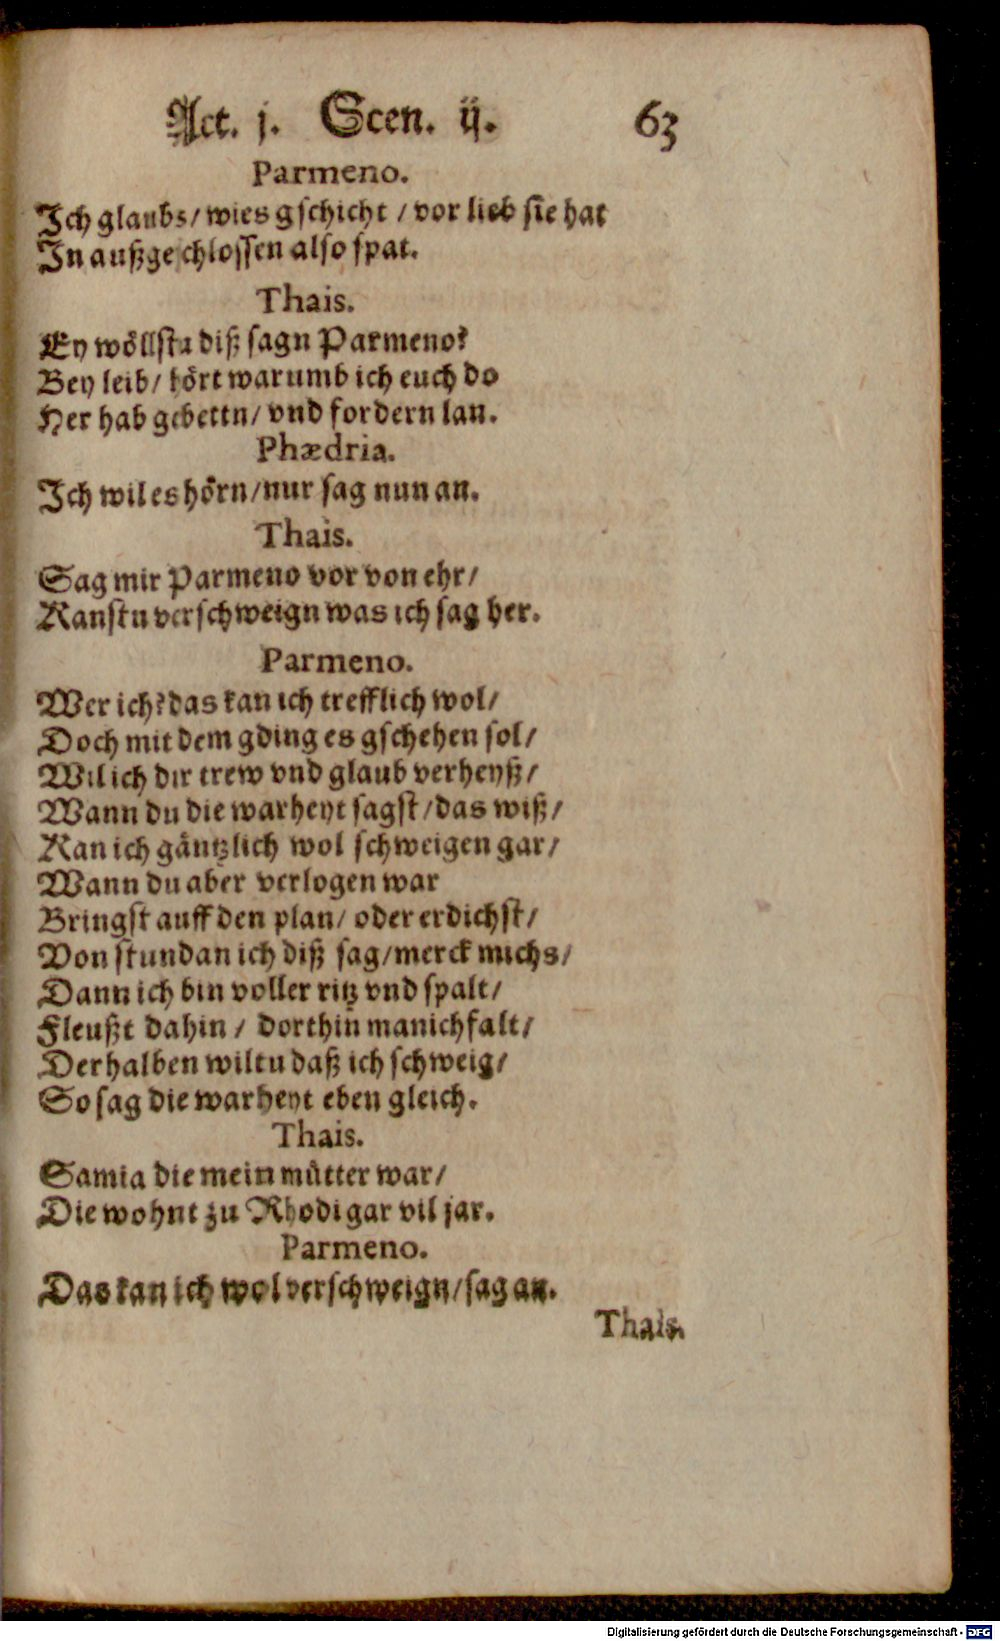 Act. j. Scen. ij. 63
Parmeno.
Ich glaubs/ wies gschicht / vor lieb sie hat
In außgeschlossen also spat.
Thais.
Ey wöllstu diß sagn Parmeno?
Bey leib/ hört warumb ich euch do
Her hab gebettn/ vnd fordern lan.
Phædria.
Ich wil es hörn/nur sag nun an.
Thais.
Sag mir Parmeno vor von ehr/
Kanstu verschweign was ich sag her.
Parmeno.
Wer ich? das kan ich trefflich wol/
Doch mit dem gding es gschehen sol/
Wil ich dir trew vnd glaub verheyß/
Wann du die warheyt sagst/das wiß/
Kan ich gäntzlich wol schweigen gar/
Wann du aber verlogen war
Bringst auff den plan/ oder erdichst/
Von stundan ich diß sag/merck michs/
Dann ich bin voller ritz vnd spalt/
Fleußt dahin / dorthin manichfalt/
Derhalben wiltu daß ich schweig/
So sag die warheyt eben gleich.
Thais.
Samia die mein můtter war/
Die wohnt zu Rhodi gar vil jar.
Parmeno.
Das kan ich wol verschweign/sag an.
Thais.
Digitalisierung gefördert durch die Deutsche Forschungsgemeinschaft - DFG